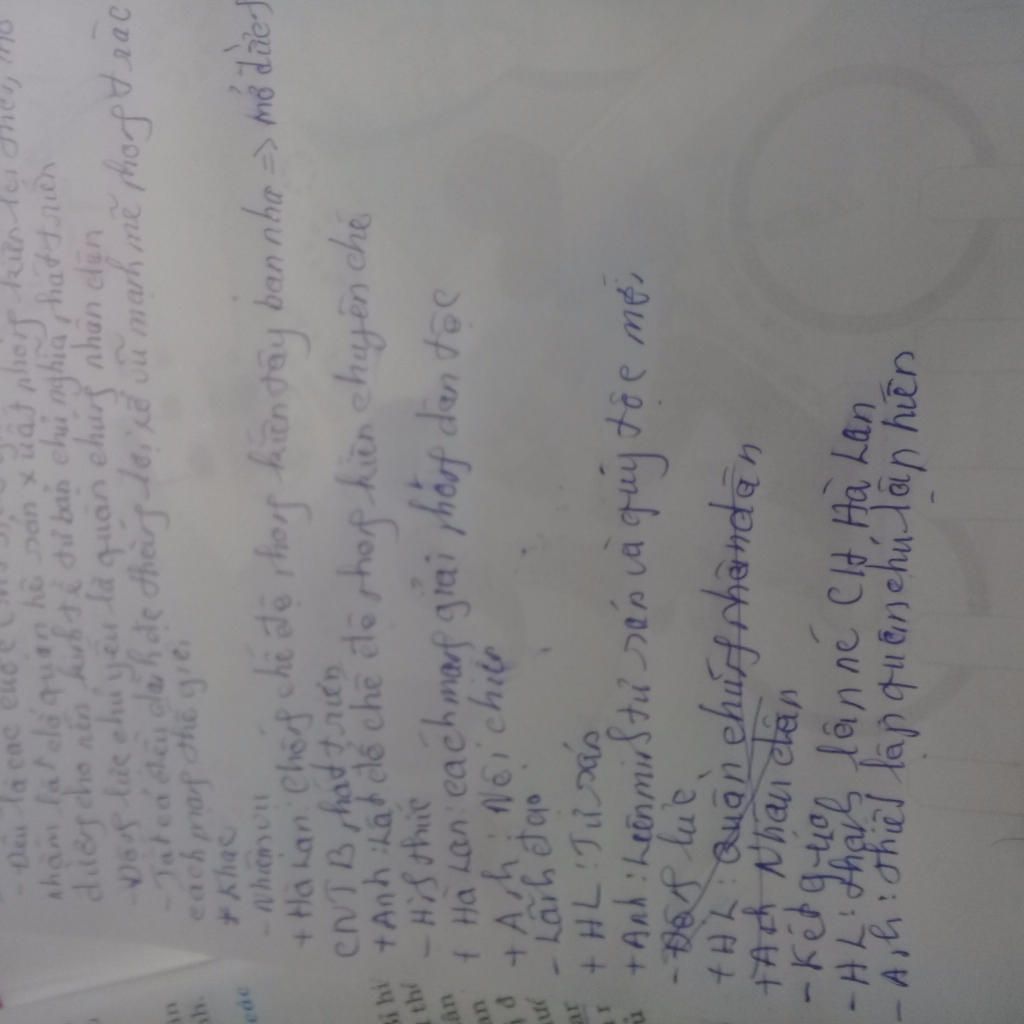 - Đều là các cuộc
nhằm lật đổ quan hệ sản xuất phong kiến lỗi thời, mở
đường cho nền kinh tế tư bản chủ nghĩa phát triển
- Động lực chủ yếu là quần chúng nhân dân
- Tất cả đều dành đc thắng lợi, cổ vũ mạnh mẽ phong trào
cách mạng thế giới
+ Khác
- Nhiệm vụ
+ Hà Lan: chống chế độ phong kiến tây ban nha => mở đường
CNTB phát triển
+ Anh: Lật đổ chế độ phong kiến chuyên chế
- Hình thức
+ Hà Lan: cách mạng giải phóng dân tộc
+ Anh: Nội chiến
- Lãnh đạo
+ HL: Tư sản
+ Anh: Liên minh tư sản và quý tộc mới
- Động lực
+ HL: Quần chúng nhân dân
+ Anh Nhân dân
- Kết quả
- HL: thành lập nc CH Hà Lan
- Anh: thiết lập quân chủ lập hiến
các